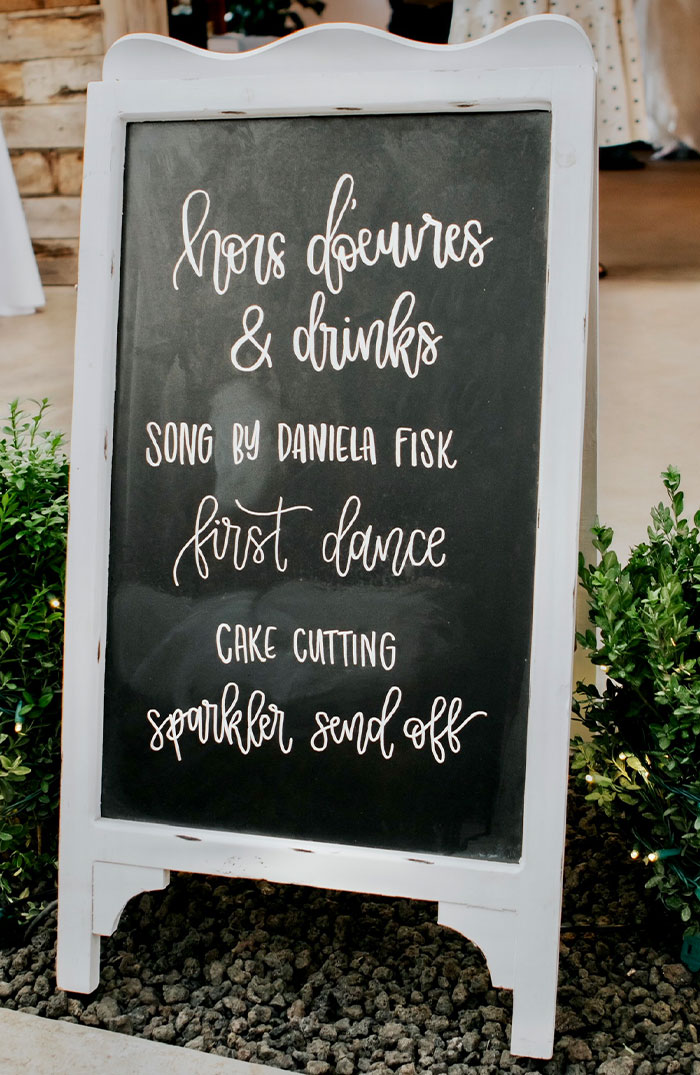 hors d'oeuvres
& drinks
SONG BY DANIELA FISK
first dance
CAKE CUTTING
sparkler send off